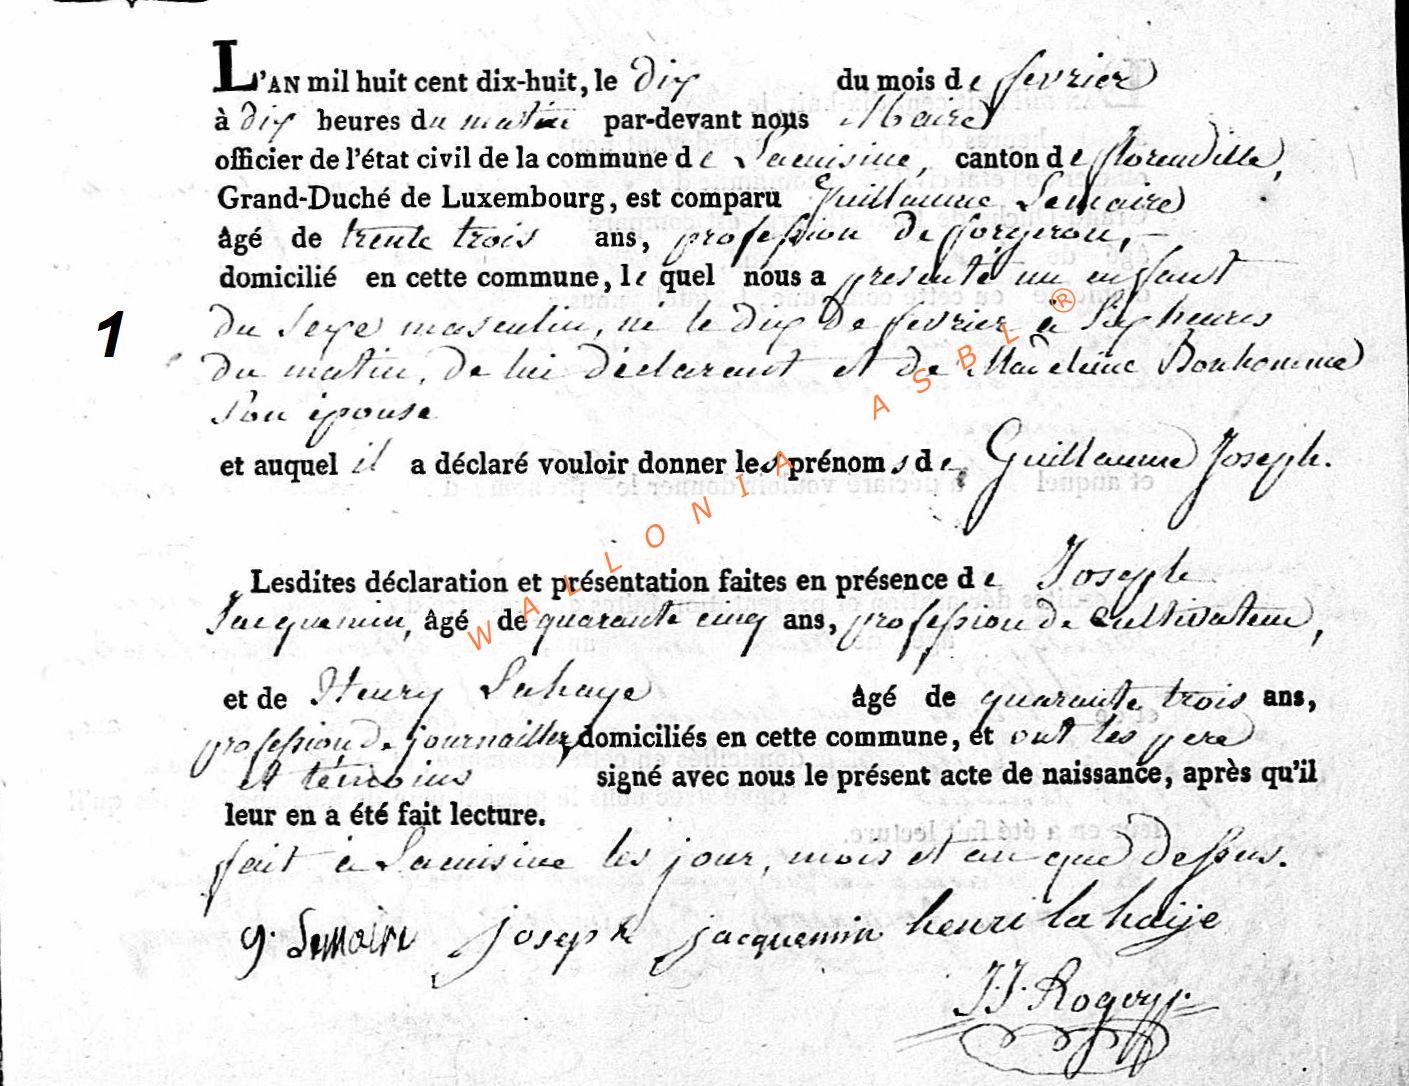 L'AN mil huit cent dix-huit, le dix du mois de fevrier
à dix heures du matin par-devant nous Maire
officier de l'état civil de la commune de Lacuisine, canton de florenville,
Grand-Duché de Luxembourg, est comparu Guillaume Lemaire
âgé de trente trois ans, profession de forgeron,
domicilié en cette commune, le quel nous a presenté un enfant
1
du sexe masculin, né le dix de fevrier à six heures
du matin, de lui déclarant et de Madeleine Bonhomme
son épouse
et auquel il a déclaré vouloir donner les prénoms de Guillaume Joseph.
Lesdites déclaration et présentation faites en présence de Joseph
Jacquemin, âgé de quarante cinq ans, profession de cultivateur,
et de Henry Lahaye âgé de quarante trois ans,
profession de journaillier, domiciliés en cette commune, et ont les pere
et témoins signé avec nous le présent acte de naissance, après qu'il
leur en a été fait lecture.
fait à Lacuisine les jour, mois et an que dessus.
g. Lemaire joseph jacquemin henri la haije
J.J. Rogery
WALLONIA ASBL ®